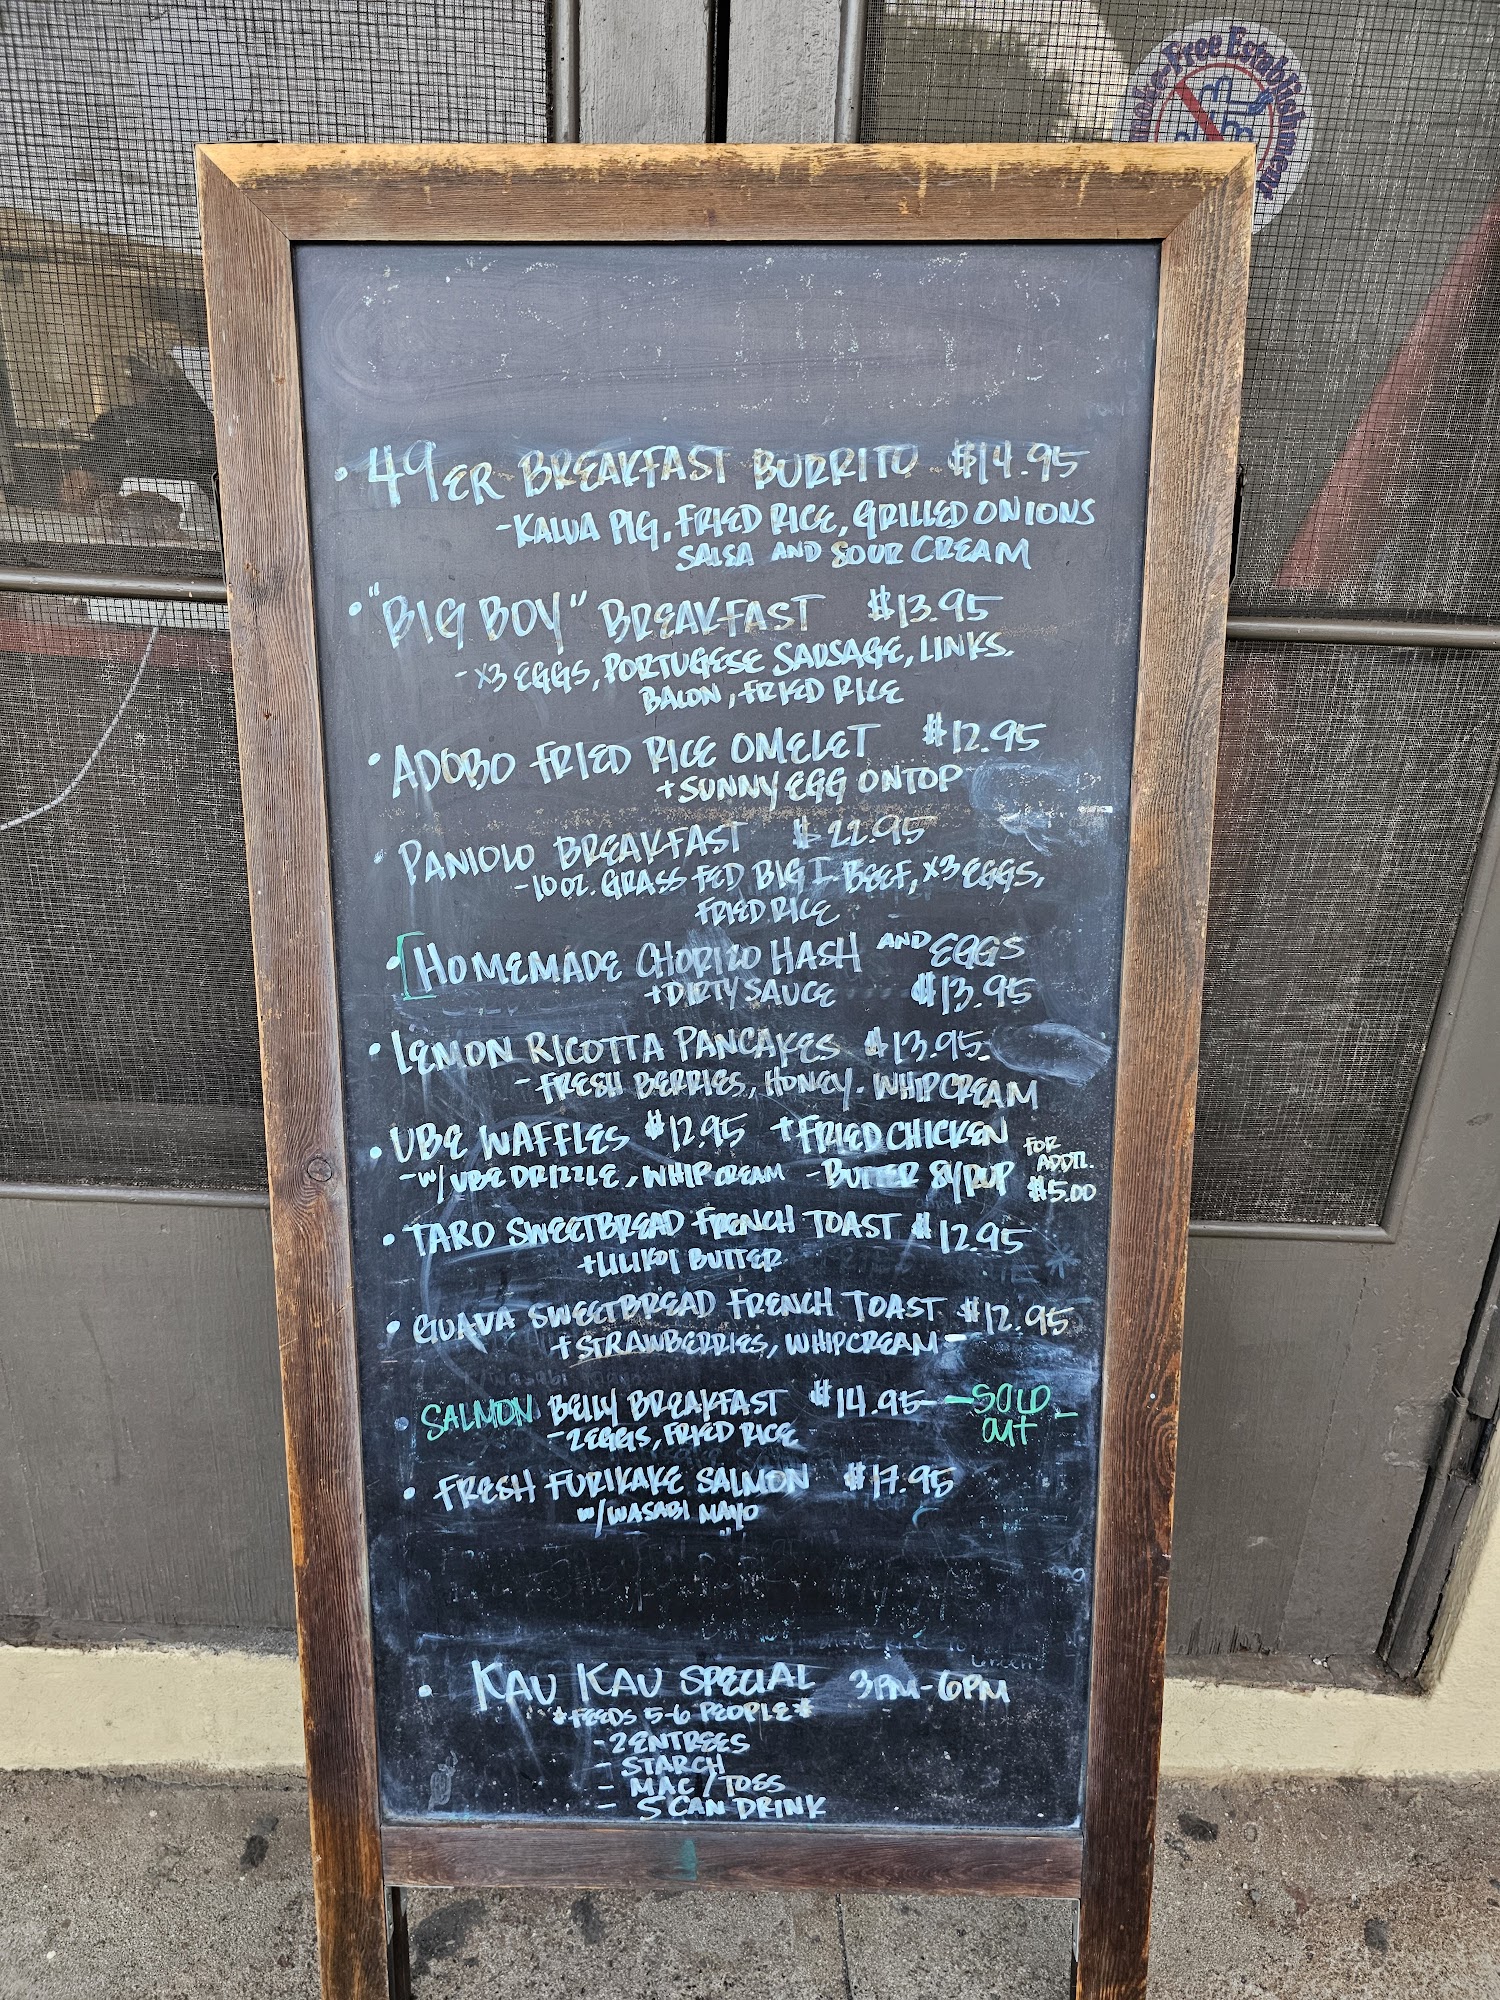 Smoke-Free Establishment
• 49ER BREAKFAST BURRITO $14.95
-KALUA PIG, FRIED RICE, GRILLED ONIONS
SALSA AND SOUR CREAM
• "BIG BOY" BREAKFAST $13.95
- X3 EGGS, PORTUGESE SAUSAGE, LINKS.
BACON, FRIED RICE
• ADOBO FRIED RICE OMELET $12.95
+SUNNY EGG ON TOP
• PANIOLO BREAKFAST $22.95
-10 OZ. GRASS FED BIG I BEEF, X3 EGGS,
FRIED RICE
• [HOMEMADE CHORIZO HASH AND EGGS
+DIRTY SAUCE $13.95
• LEMON RICOTTA PANCAKES $13.95
- FRESH BERRIES, HONEY- WHIPCREAM
• UBE WAFFLES $12.95 +FRIED CHICKEN
-W/ UBE DRIZZLE, WHIP CREAM -BUTTER SYRUP
FOR
ADDTL.
$5.00
• TARO SWEETBREAD FRENCH TOAST $12.95
+LILIKOI BUTTER
• GUAVA SWEETBREAD FRENCH TOAST $12.95
+STRAWBERRIES, WHIPCREAM-
• SALMON BELLY BREAKFAST $14.95 -SOLD
OUT-
-2 EGGS, FRIED RICE
• FRESH FURIKAKE SALMON $17.95
W/WASABI MAYO
• KAU KAU SPECIAL 3PM-6PM
*FEEDS 5-6 PEOPLE*
-2 ENTREES
- STARCH
- MAC / TOSS
- 5 CAN DRINK